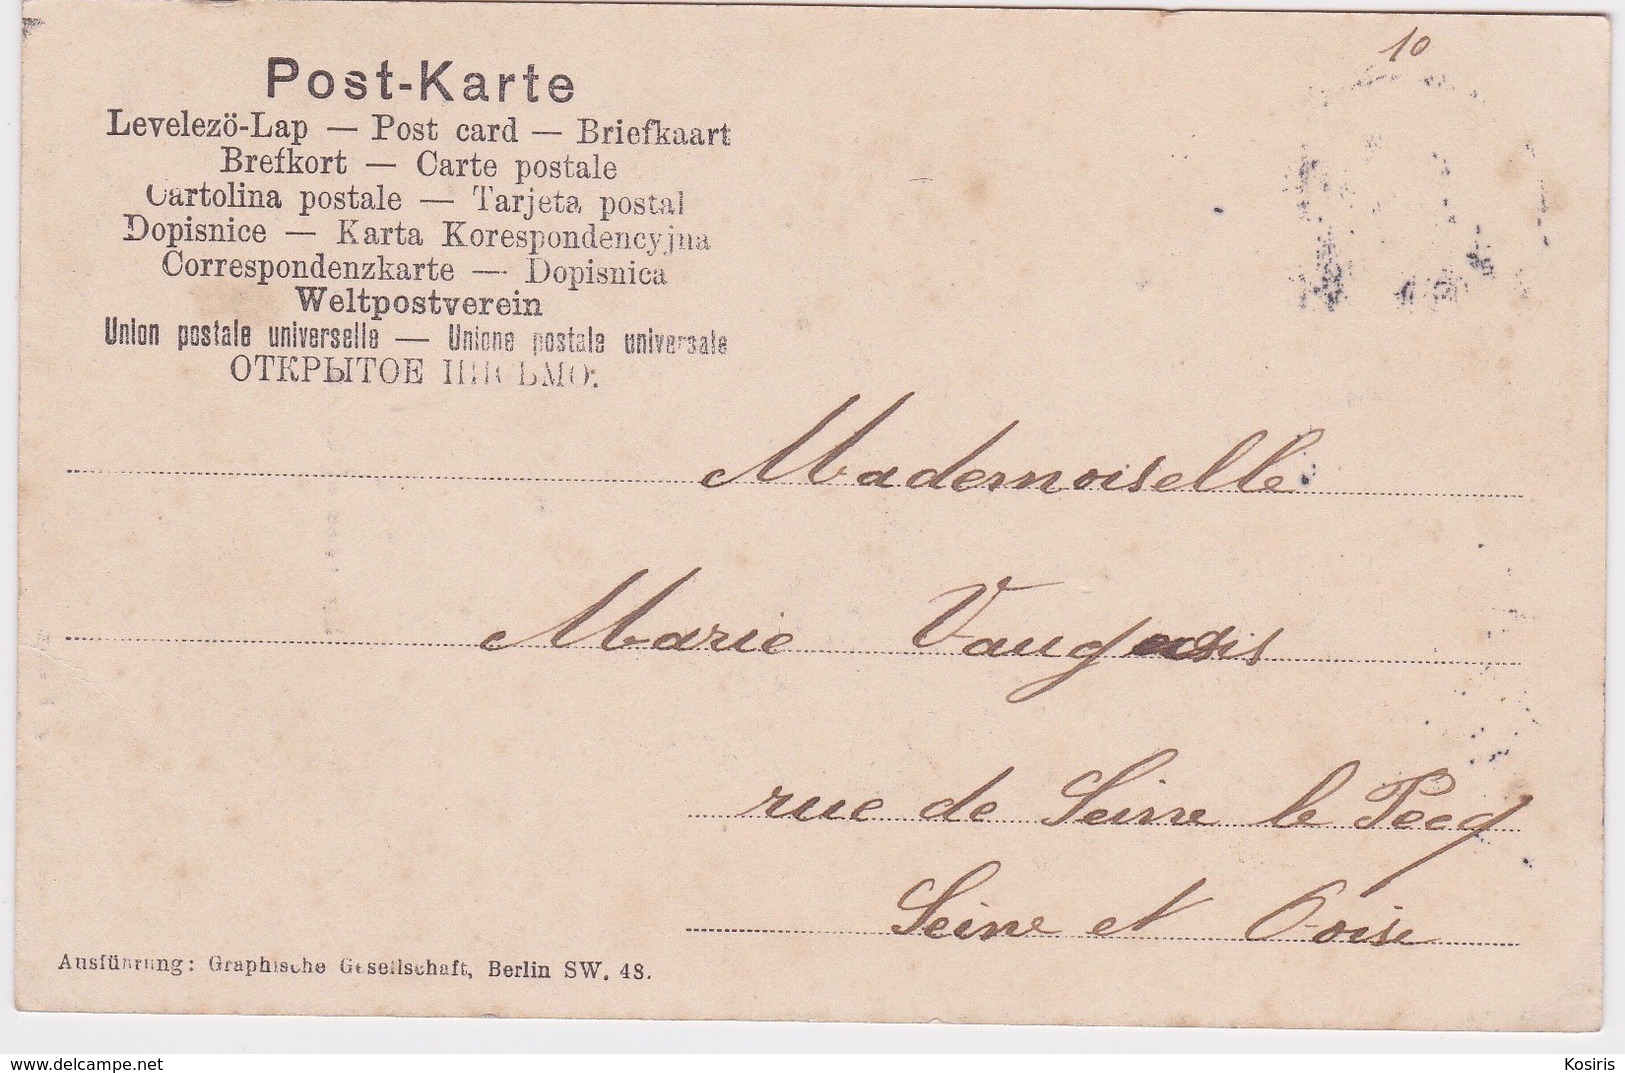 10
Post-Karte
Levelezö-Lap — Post card — Briefkaart
Brefkort — Carte postale
Cartolina postale — Tarjeta postal
Dopisnice — Karta Korespondencyjna
Correspondenzkarte — Dopisnica
Weltpostverein
Union postale universelle — Unione postale universale
ОТКРЫТОЕ ПИСЬМО.
Mademoiselle
Marie
rue de Seine le Pecq
Seine et Oise
Ausführung: Graphische Gesellschaft, Berlin SW. 48.
www.delcampe.net
Kosiris